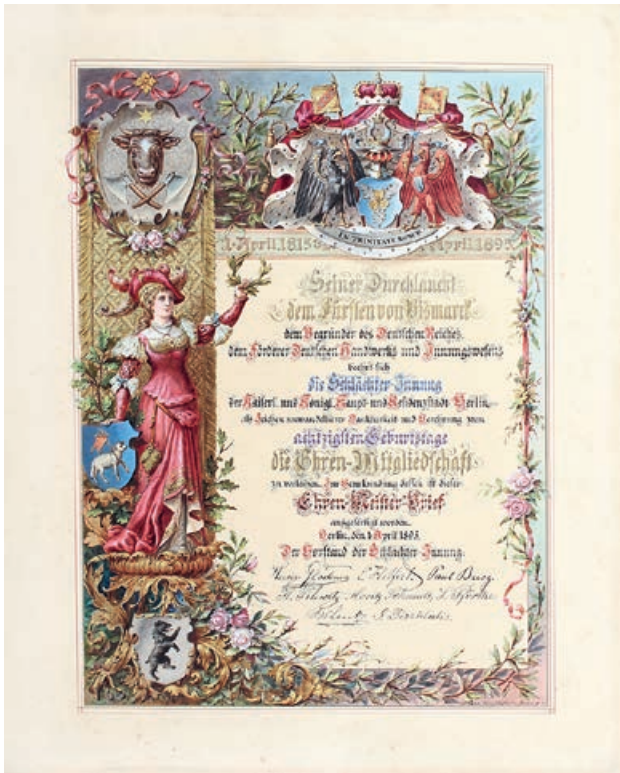 IN TRINITATE ROBUR
1. April 1815
April 1895
Seiner Durchlaucht
dem Fürsten von Bismarck
dem Begründer des Deutschen Reiches,
dem Förderer Deutschen Handwerks und Innungswesens
beehrt sich
die Schlächter-Innung
der Kaiserl. und Königl. Haupt- und Residenzstadt Berlin,
als Zeichen unwandelbarer Dankbarkeit und Verehrung zum
achtzigsten Geburtstage
die Ehren-Mitgliedschaft
zu verleihen. Zur Beurkundung dessen ist dieser
Ehren-Meister-Brief
ausgefertigt worden.
Berlin, den 1. April 1895.
Der Vorstand der Schlächter-Innung.
Helfert Paul
Moritz